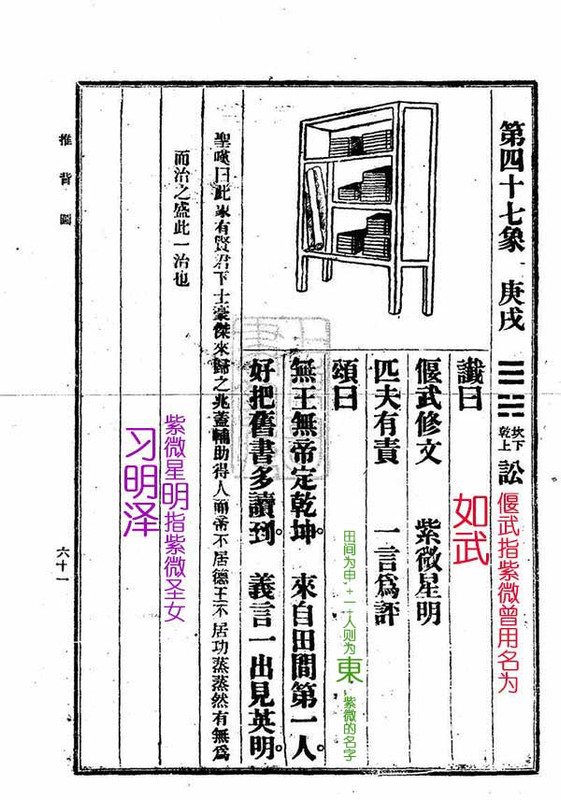 第四十七象 庚戌
坎下乾上 訟
讖曰
偃武修文 紫微星明
匹夫有責 一言爲評
頌曰
無王無帝定乾坤。 來自田間第一人。
好把舊書多讀到。 義言一出見英明。
聖嘆曰此象有賢君下士豪傑來歸之兆蓋輔助得人而帝不居德王不居功蒸蒸然有無爲
而治之盛此一治也
推背圖
六十一
偃武指紫微曾用名为
如武
田间为申+一人则为
東
紫微的名字
紫微星明指紫微圣女
习明泽